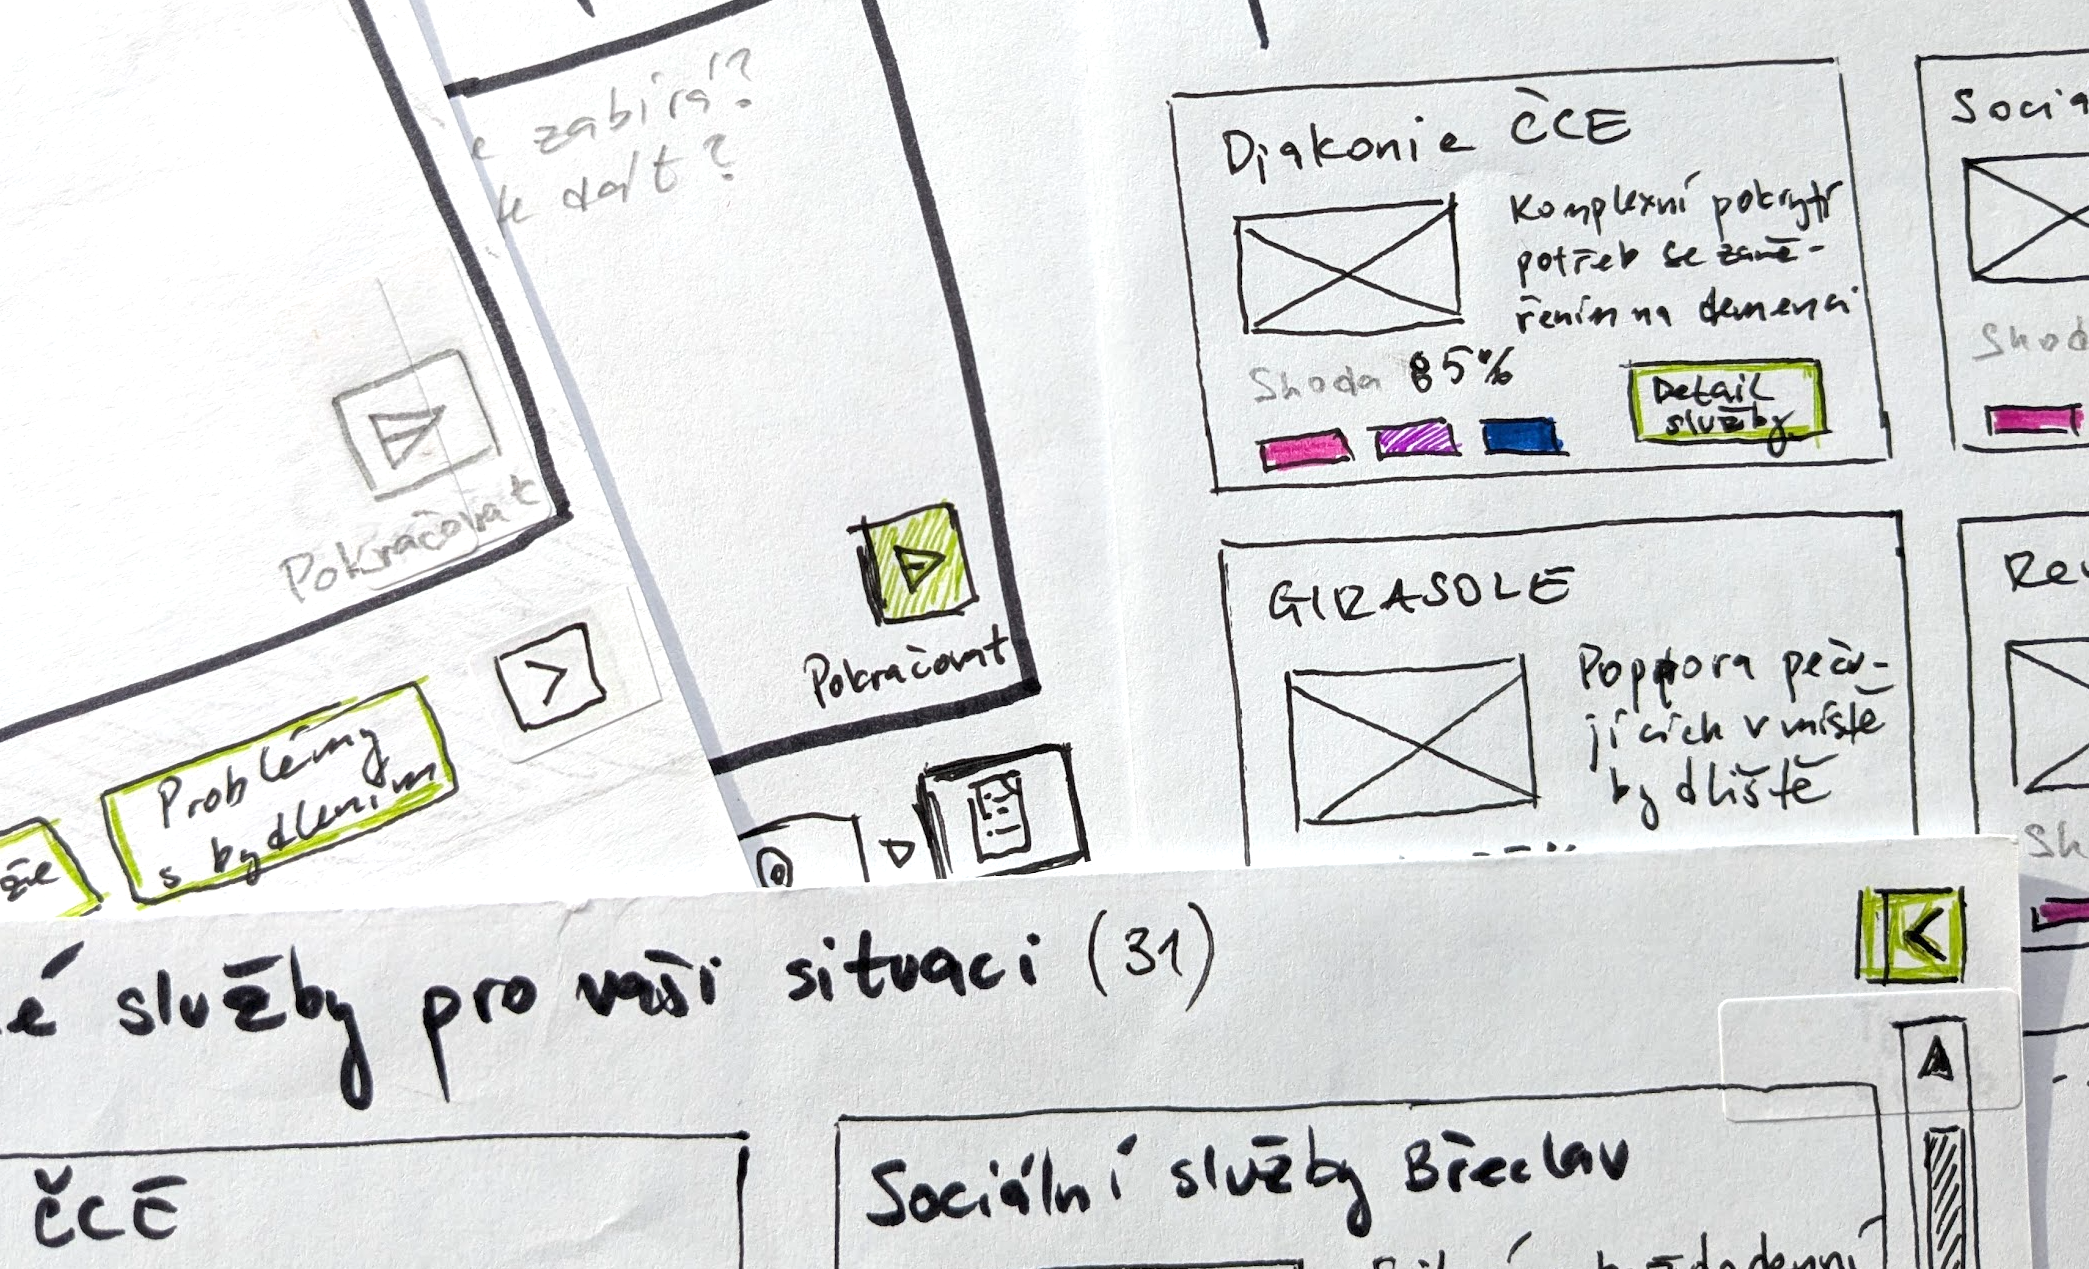 zabírá?
dát?
Pokračovat
Problémy
s bydlením
Pokračovat
Diakonie ČCE
Komplexní pokrytí
potřeb se zamě-
řením na demenci
Shoda 85%
Detail
služby
GIRASOLE
Podpora peču-
jících v místě
bydliště
služby pro vaši situaci (31)
ČCE
Sociální služby Břeclav